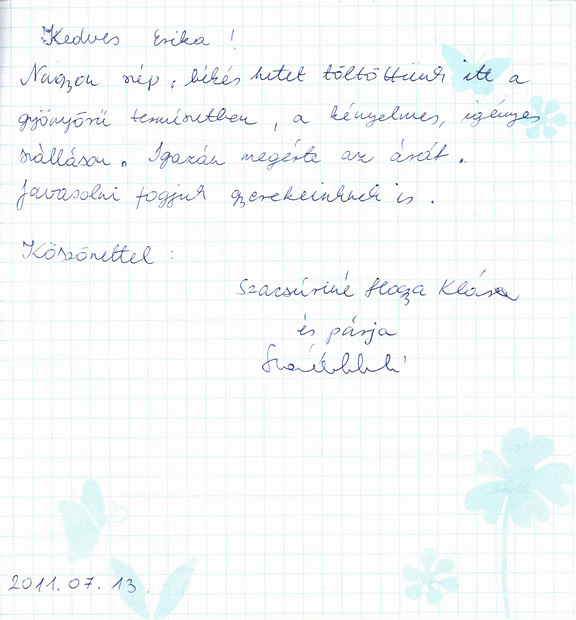 Kedves Erika !
Nagyon szép, békés hetet töltöttünk itt a
gyönyörű természetben , a kényelmes, igényes
szálláson. Igazán megérte az árát.
Javasolni fogjuk gyerekeinknek is .
Köszönettel :
Klára
és párja
2011.07.13